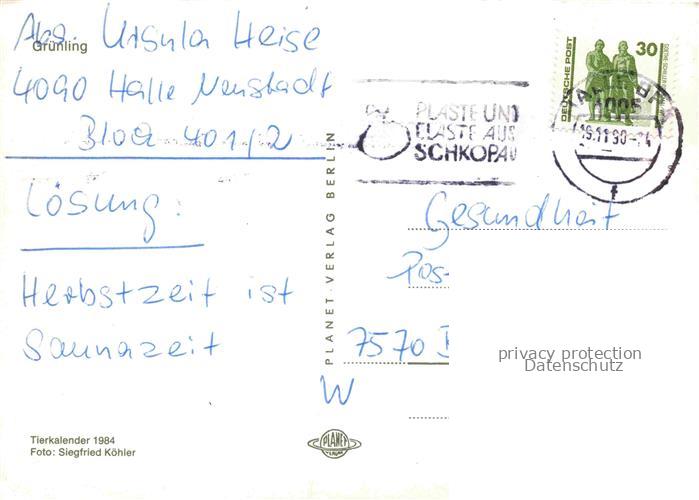 Abs. Ursula Heise
Grünling
4090 Halle Neustadt
Block 401/2
Lösung:
Herbstzeit ist
Saunazeit
Tierkalender 1984
Foto: Siegfried Köhler
PLANET-VERLAG BERLIN
PLANET
PLASTE UND
ELASTE AUS
SCHKOPAU
DEUTSCHE POST
30
HALLE
4095
Gesundheit
Pos-
7570
W
privacy protection
Datenschutz